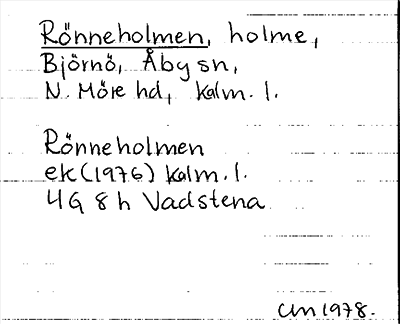 Rönneholmen, holme,
Björnö, Åby sn,
N. Möre hd, Kalm. l.
Rönneholmen
ek (1976) Kalm. l.
4G 8h Vadstena
CM 1978.